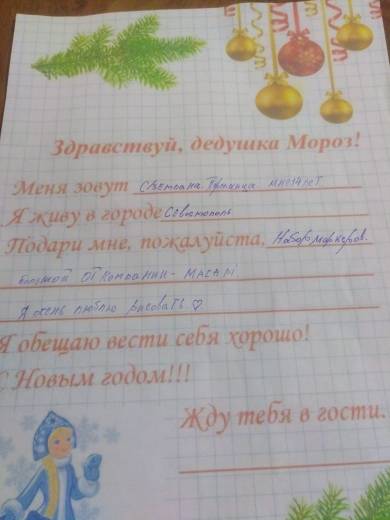 Здравствуй, дедушка Мороз!
Меня зовут Светлана
Я живу в городе Севастополь
Подари мне, пожалуйста, Набор маркеров.
большой от компании -
Я очень люблю рисовать ♡
Я обещаю вести себя хорошо!
С Новым годом!!!
Жду тебя в гости.